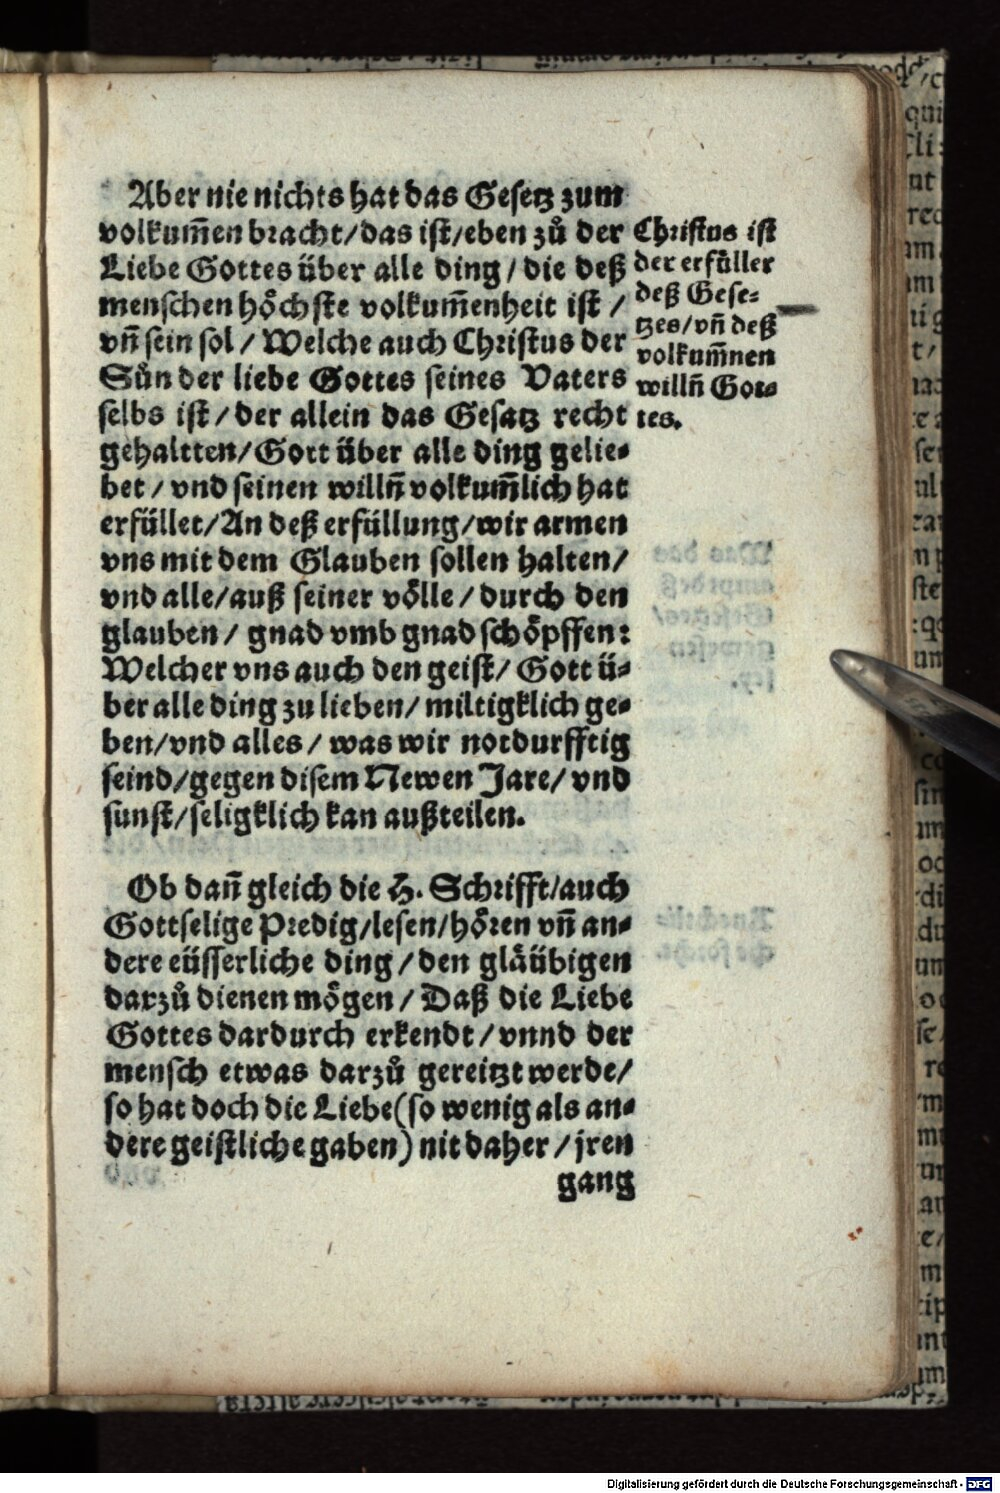 Aber nie nichts hat das Gesetz zum
volkum̄en bracht/das ist/eben zů der
Liebe Gottes über alle ding/die deß
menschen hoͤchste volkum̄enheit ist/
vn̄ sein sol/Welche auch Christus der
Sůn der liebe Gottes seines Vaters
selbs ist/der allein das Gesatz recht
gehaltten/Gott über alle ding gelie-
bet/vnd seinen willn̄ volkum̄lich hat
erfüllet/An deß erfüllung/wir armen
vns mit dem Glauben sollen halten/
vnd alle/auß seiner voͤlle/durch den
glauben/gnad vmb gnad schoͤpffen:
Welcher vns auch den geist/Gott ü-
ber alle ding zu lieben/miltigklich ge-
ben/vnd alles/was wir notdurfftig
seind/gegen disem Newen Jare/vnd
sunst/seligklich kan außteilen.
Christus ist
der erfüller
deß Gese-
tzes/vn̄ deß
volkum̄nen
willn̄ Got-
tes.
Ob dan̄ gleich die H. Schrifft/auch
Gottselige Predig/lesen/hoͤren vn̄ an-
dere eüsserliche ding/den gläübigen
darzů dienen moͤgen/Daß die Liebe
Gottes dardurch erkendt/vnnd der
mensch etwas darzů gereitzt werde/
so hat doch die Liebe(so wenig als an-
dere geistliche gaben) nit daher/jren
gang
Digitalisierung gefördert durch die Deutsche Forschungsgemeinschaft - DFG